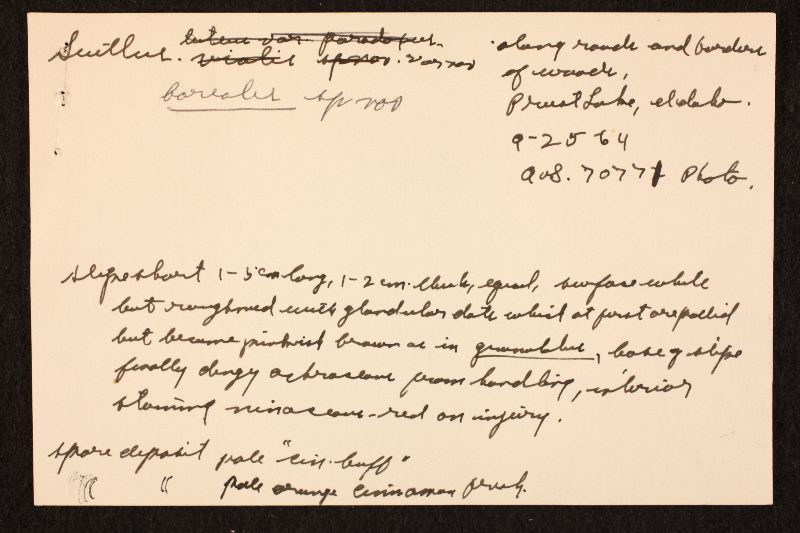 Suillus. luteus var paradoxus.
vialis sp nov. var nov
borealis sp nov
along roads and borders
of woods,
Priest Lake, Idaho.
9-25 64
AHS. 70771 Photo.
stipe short 1-5 cm long, 1-2 cm. thick, equal, surface white
but roughened with glandular dots which at first are pallid
but become pinkish brown as in granulatus, base of stipe
finally dingy ochraceous from handling, interior
staining vinaceous-red on injury.
spore deposit pale "cin. buff"
" " pale orange cinnamon fresh.